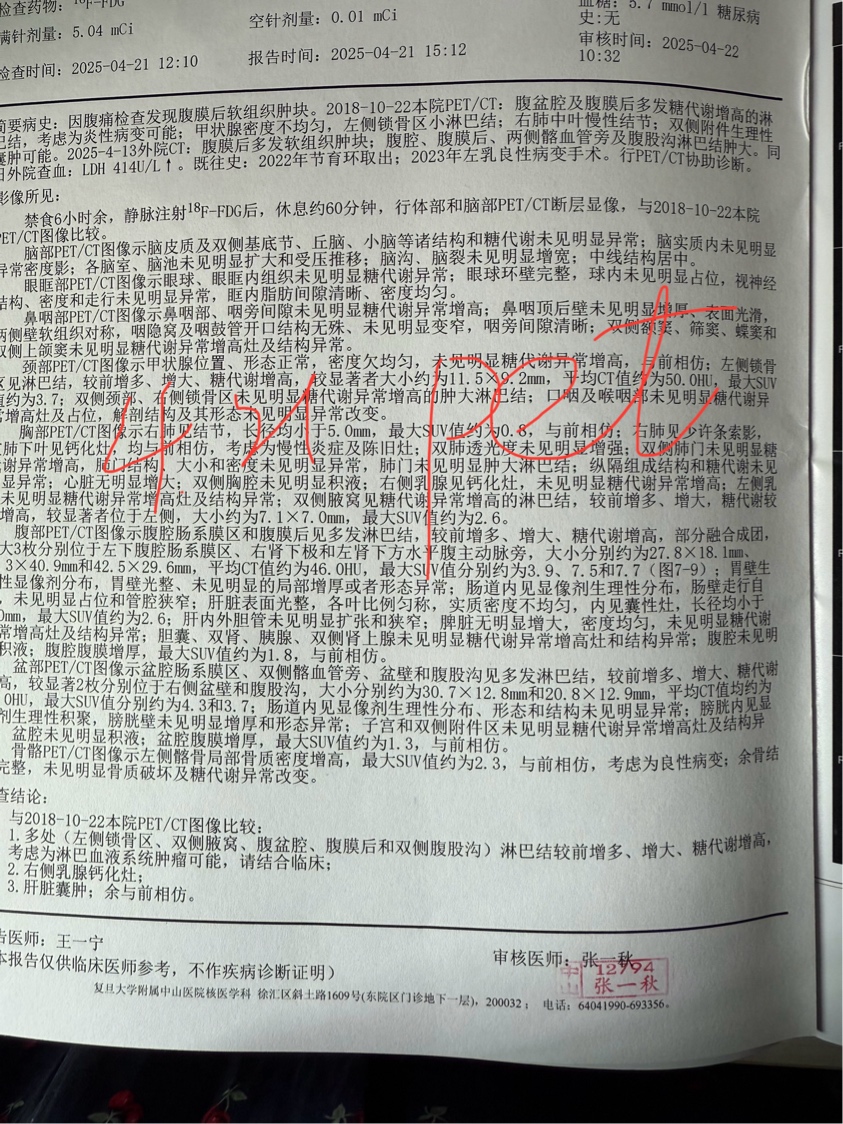 检查药物：¹⁸F-FDG
血糖：5.7 mmol/l 糖尿病
满针剂量：5.04 mCi
空针剂量：0.01 mCi
史:无
检查时间：2025-04-21 12:10
报告时间：2025-04-21 15:12
审核时间：2025-04-22
10:32
简要病史：因腹痛检查发现腹膜后软组织肿块。2018-10-22本院PET/CT：腹盆腔及腹膜后多发糖代谢增高的淋
巴结，考虑为炎性病变可能；甲状腺密度不均匀，左侧锁骨区小淋巴结；右肺中叶慢性结节；双侧附件生理性
囊肿可能。2025-4-13外院CT：腹膜后多发软组织肿块；腹腔、腹膜后、两侧髂血管旁及腹股沟淋巴结肿大。同
日外院查血：LDH 414U/L↑。既往史：2022年节育环取出；2023年左乳良性病变手术。行PET/CT协助诊断。
影像所见：
禁食6小时余，静脉注射¹⁸F-FDG后，休息约60分钟，行体部和脑部PET/CT断层显像，与2018-10-22本院
PET/CT图像比较。
脑部PET/CT图像示脑皮质及双侧基底节、丘脑、小脑等诸结构和糖代谢未见明显异常；脑实质内未见明显
异常密度影；各脑室、脑池未见明显扩大和受压推移；脑沟、脑裂未见明显增宽；中线结构居中。
眼眶部PET/CT图像示眼球、眼眶内组织未见明显糖代谢异常；眼球环壁完整，球内未见明显占位，视神经
结构、密度和走行未见明显异常，眶内脂肪间隙清晰、密度均匀。
鼻咽部PET/CT图像示鼻咽部、咽旁间隙未见明显糖代谢异常增高；鼻咽顶后壁未见明显增厚、表面光滑，
两侧壁软组织对称，咽隐窝及咽鼓管开口结构无殊、未见明显变窄，咽旁间隙清晰；双侧额窦、筛窦、蝶窦和
双侧上颌窦未见明显糖代谢异常增高灶及结构异常。
颈部PET/CT图像示甲状腺位置、形态正常，密度欠均匀，未见明显糖代谢异常增高，与前相仿；左侧锁骨
区见淋巴结，较前增多、增大、糖代谢增高，较显著者大小约为11.5×9.2mm，平均CT值约为50.0HU，最大SUV
值约为3.7；双侧颈部、右侧锁骨区未见明显糖代谢异常增高的肿大淋巴结；口咽及喉咽部未见明显糖代谢异
常增高灶及占位，解剖结构及其形态未见明显异常改变。
胸部PET/CT图像示右肺见结节，长径均小于5.0mm，最大SUV值约为0.8，与前相仿；右肺见少许条索影，
肺下叶见钙化灶，均与前相仿，考虑为慢性炎症及陈旧灶；双肺透光度未见明显增强；双侧肺门未见明显糖
谢异常增高，肺门结构、大小和密度未见明显异常，肺门未见明显肿大淋巴结；纵隔组成结构和糖代谢未见
显异常；心脏无明显增大；双侧胸腔未见明显积液；右侧乳腺见钙化灶，未见明显糖代谢异常增高；左侧乳
未见明显糖代谢异常增高灶及结构异常；双侧腋窝见糖代谢异常增高的淋巴结，较前增多、增大，糖代谢较
增高，较显著者位于左侧，大小约为7.1×7.0mm，最大SUV值约为2.6。
腹部PET/CT图像示腹腔肠系膜区和腹膜后见多发淋巴结，较前增多、增大、糖代谢增高，部分融合成团，
大3枚分别位于左下腹腔肠系膜区、右肾下极和左肾下方水平腹主动脉旁，大小分别约为27.8×18.1mm、
3×40.9mm和42.5×29.6mm，平均CT值约为46.0HU，最大SUV值分别约为3.9、7.5和7.7（图7-9）；胃壁生
性显像剂分布，胃壁光整、未见明显的局部增厚或者形态异常；肠道内见显像剂生理性分布，肠壁走行自
，未见明显占位和管腔狭窄；肝脏表面光整，各叶比例匀称，实质密度不均匀，内见囊性灶，长径均小于
0mm，最大SUV值约为2.6；肝内外胆管未见明显扩张和狭窄；脾脏无明显增大，密度均匀，未见明显糖代谢
常增高灶及结构异常；胆囊、双肾、胰腺、双侧肾上腺未见明显糖代谢异常增高灶和结构异常；腹腔未见明
积液；腹腔腹膜增厚，最大SUV值约为1.8，与前相仿。
盆部PET/CT图像示盆腔肠系膜区、双侧髂血管旁、盆壁和腹股沟见多发淋巴结，较前增多、增大、糖代谢
高，较显著2枚分别位于右侧盆壁和腹股沟，大小分别约为30.7×12.8mm和20.8×12.9mm，平均CT值均约为
0HU，最大SUV值分别约为4.3和3.7；肠道内见显像剂生理性分布、形态和结构未见明显异常；膀胱内见显
剂生理性积聚，膀胱壁未见明显增厚和形态异常；子宫和双侧附件区未见明显糖代谢异常增高灶及结构异
盆腔未见明显积液；盆腔腹膜增厚，最大SUV值约为1.3，与前相仿。
骨骼PET/CT图像示左侧髂骨局部骨质密度增高，最大SUV值约为2.3，与前相仿，考虑为良性病变；余骨结
完整，未见明显骨质破坏及糖代谢异常改变。
4,21 pet
查结论：
与2018-10-22本院PET/CT图像比较：
1.多处（左侧锁骨区、双侧腋窝、腹盆腔、腹膜后和双侧腹股沟）淋巴结较前增多、增大、糖代谢增高，
考虑为淋巴血液系统肿瘤可能，请结合临床；
2.右侧乳腺钙化灶；
3.肝脏囊肿；余与前相仿。
告医师：王一宁
审核医师：张一秋
本报告仅供临床医师参考，不作疾病诊断证明）
中山
12794
张一秋
复旦大学附属中山医院核医学科 徐汇区斜土路1609号(东院区门诊地下一层)，200032； 电话：64041990-693356。